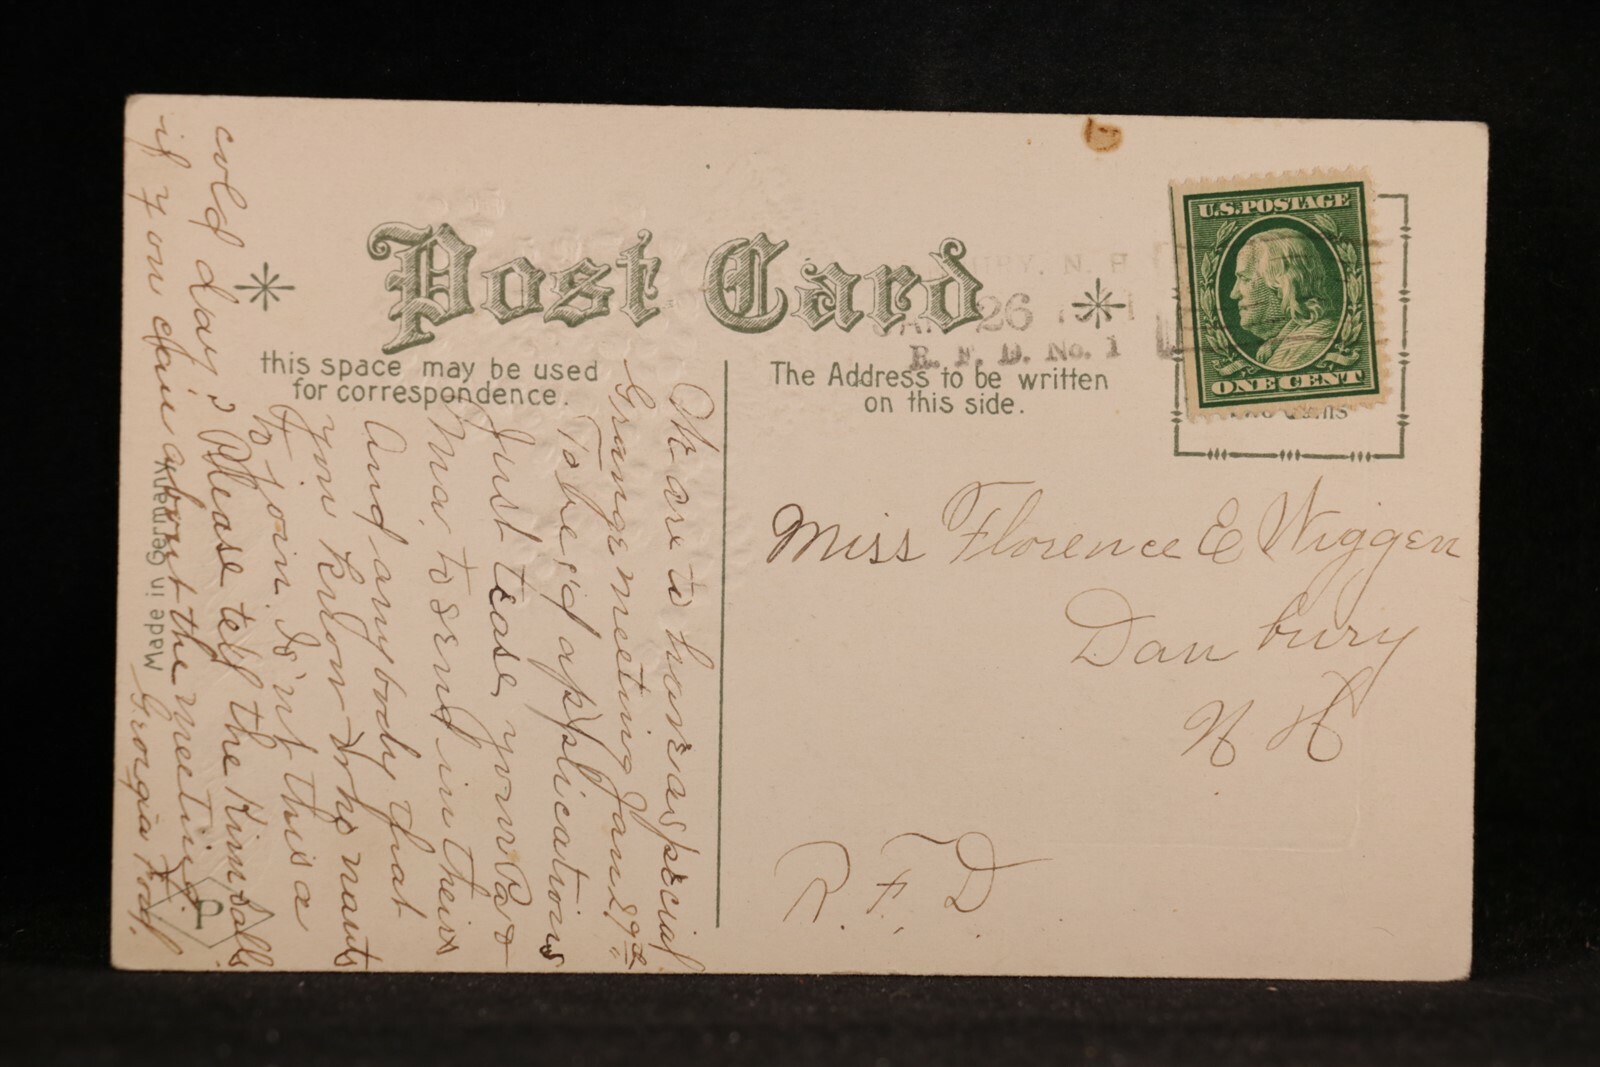 Post Card
this space may be used
for correspondence.
The Address to be written
on this side.
U.S. POSTAGE
ONE CENT
26
R. F. D. No. 1
Miss Florence E Wiggen
Danbury
N H
R. F. D.
We are to have a special
Grange meeting Jan 29th
To be g'd applications
Just tease your Pa &
Ma, to send in theirs
And anybody that
you know who wants
to join. Is'nt this a
cold day? Please tell the Kimballs
if you can about the meeting.
Georgia
Made in Germany